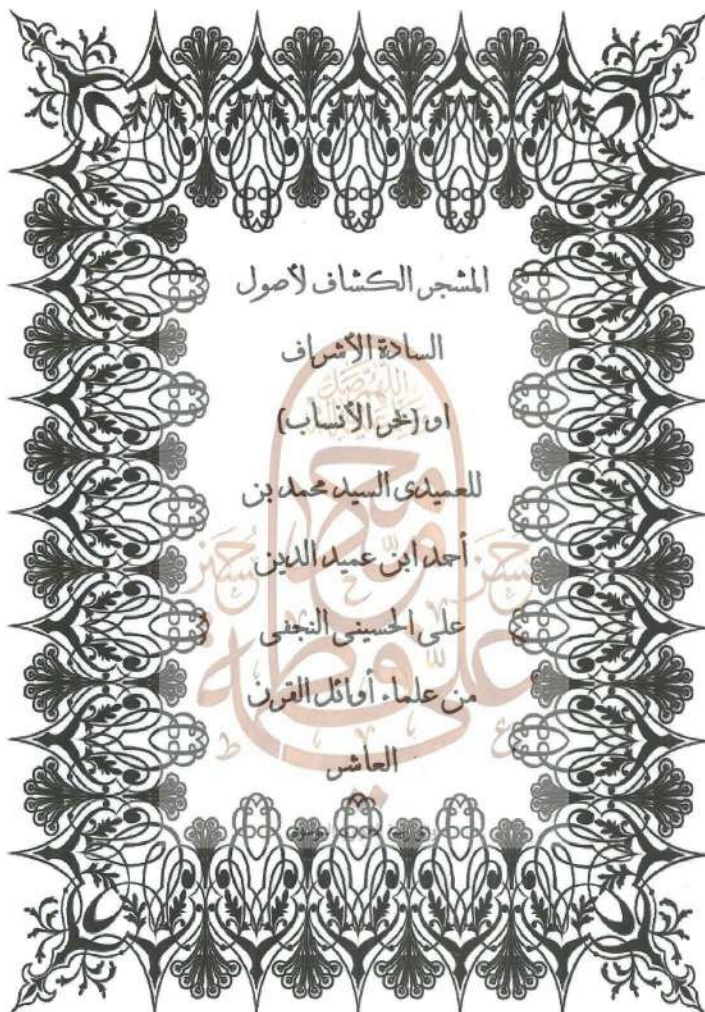 المشجر الكشاف لأصول
السادة الأشراف
او (بحر الأنساب)
للعميدى السيد محمد بن
أحمد ابن عميد الدين
على الحسينى النجفى
من علماء أوائل القرن
العاشر
اللهم صل
محمد
حسن
حسين
علي
فاطمة